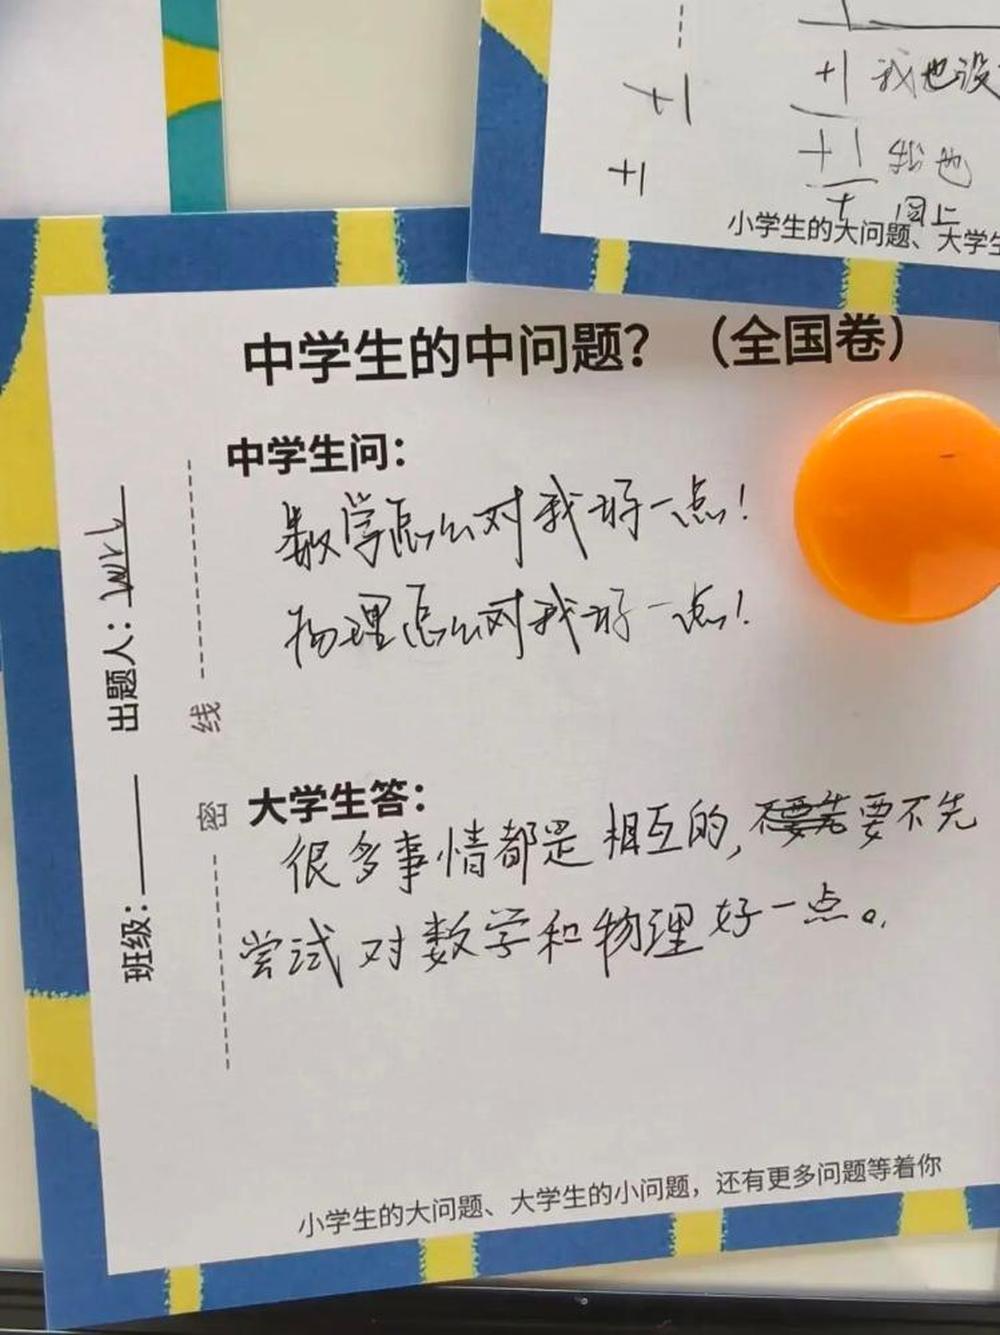 +1
+1 我也没
+1
+1 我也
同上
小学生的大问题、大学生
中学生的中问题？（全国卷）
中学生问：
数学怎么对我好一点！
物理怎么对我好一点！
出题人：
线
密
班级：
大学生答：
很多事情都是相互的，要不先
尝试对数学和物理好一点。
小学生的大问题、大学生的小问题，还有更多问题等着你